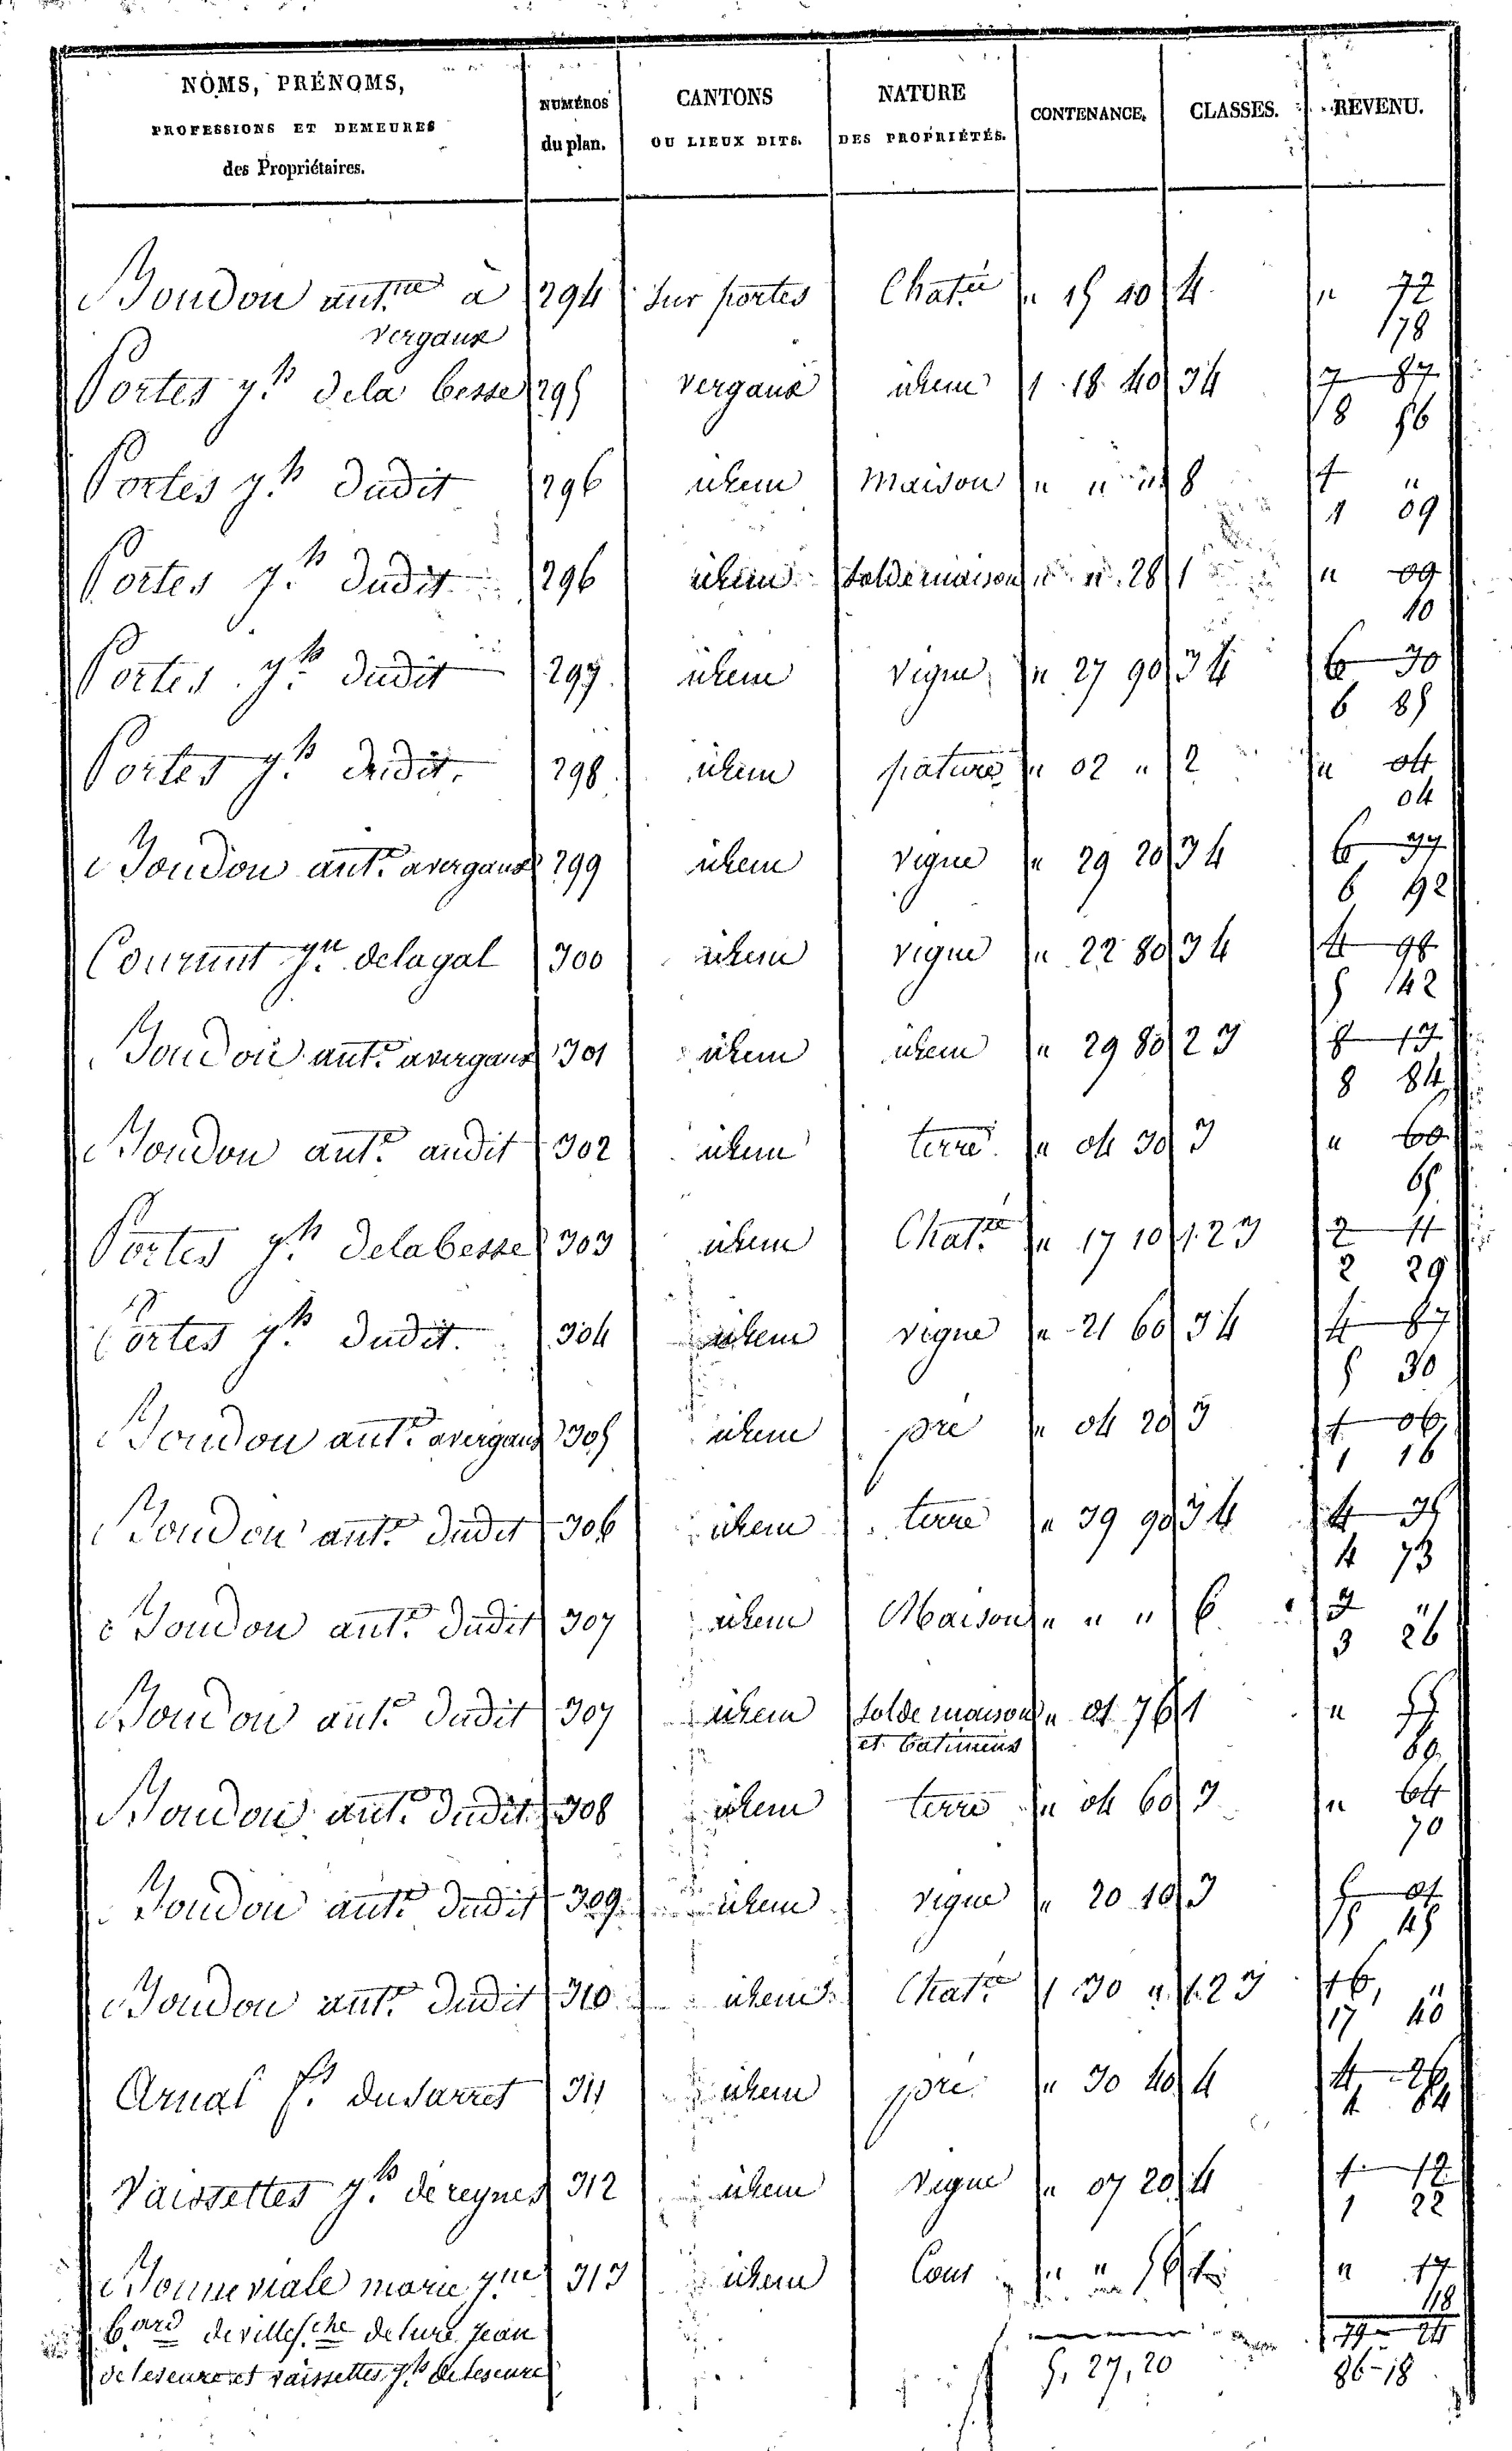 NOMS, PRÉNOMS, PROFESSIONS ET DEMEURES des Propriétaires. NUMÉROS du plan. CANTONS OU LIEUX DITS. NATURE DES PROPRIÉTÉS. CONTENANCE. CLASSES. REVENU.
Boudon ant.ne à 294 Sur portes Chat.ie " 15 10 4 " 72
vergaux 78
Portes j.h dela besse 295 vergaux idem 1 18 40 3 4 7 87
8 56
Portes j.h dudit 296 idem Maison " " " 8 1 "
1 09
Portes j.h dudit 296 idem Sol de maison " " 28 1 " 09
10
Portes j.h dudit 297 idem vigne " 27 90 3 4 6 30
6 85
Portes j.h dudit 298 idem pature " 02 " 2 " 04
04
Boudon ant.e a vergaux 299 idem vigne " 29 20 3 4 6 37
6 92
Courant delagal 300 idem vigne " 22 80 3 4 4 98
5 42
Boudon ant.e a vergaux 301 idem idem " 29 80 2 3 8 13
8 84
Boudon ant.e audit 302 idem terre " 04 30 3 " 60
65
Portes j.h dela besse 303 idem Chat.re " 17 10 1.2 3 2 11
2 29
Portes j.h dudit 304 idem vigne " 21 60 3 4 4 87
5 30
Boudon ant.e a vergaux 305 idem pré " 04 20 3 1 06
1 16
Boudon ant.e dudit 306 idem terre " 39 90 3 4 4 35
4 73
Boudon ant.e dudit 307 idem Maison " " " 6 3 "
3 26
Boudon ant.e dudit 307 idem Sol de maison " 01 76 1 " 55
et batimens 60
Boudon ant.e dudit 308 idem terre " 04 60 3 " 64
70
Boudon ant.e dudit 309 idem vigne " 20 10 3 5 01
5 45
Boudon ant.e dudit 310 idem Chat.re 1 30 " 1.2 3 16 "
17 40
Arnal f.s du Sarret 311 idem pré " 30 40 4 4 26
4 64
Vaissettes j.h de reynes 312 idem vigne " 07 20 4 1 12
1 22
Bonneviale marie 313 idem Cour " " 56 1 " 17
18
de lescure jean 79 24
de lescure et vaissettes j.h de lescure 5, 27, 20 86-18